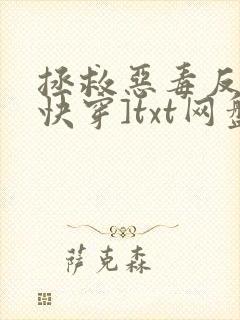 拯救恶毒反
快穿]txt网盘
萨克森